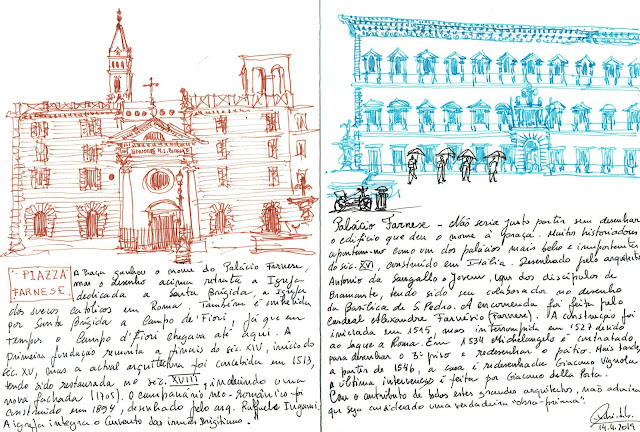 HONOREM
PIAZZA
FARNESE
A Praça ganhou o nome do Palácio Farnese,
mas o desenho acima retrata a Igreja
dedicada a Santa Brígida, a Igreja
dos suecos católicos em Roma. Também é conhecida
por Santa Brígida a Campo de' Fiori, já que em
tempos o Campo d'Fiori chegava até aqui. A
primeira fundação remonta a finais do séc. XIV, início do
séc. XV, mas a actual arquitectura foi concebida em 1513,
tendo sido restaurada no séc. XVIII, incluindo uma
nova fachada (1705). O campanário neo-românico foi
construído em 1894, desenhado pelo arq. Raffaele Ingami.
A igreja integra o Convento das irmãs Brigitinas.
Palácio Farnese - Não seria justo partir sem desenhar
o edifício que deu o nome à praça. Muitos historiadores
apontam-no como um dos palácios mais belos e importantes
do séc. XVI, construído em Itália. Desenhado pelo arquitecto
Antonio da Sangallo o Jovem, um dos discípulos de
Bramante, tendo sido seu colaborador no desenho
da Basílica de S. Pedro. A encomenda foi feita pelo
Cardeal Alexandre Farnésio (Farnese). A construção foi
iniciada em 1515, mas interrompida em 1527 devido
ao Saque a Roma. Em 1534 Michelangelo é contratado,
para desenhar o 3º piso e redesenhar o pátio. Mais tarde,
a partir de 1546, a casa é redesenhada Giacomo Vignola
A última intervenção é feita por Giacomo della Porta.
Com o contributo de todos estes grandes arquitectos, não admira
que seja considerado uma verdadeira "obra-prima".
14.4.2019